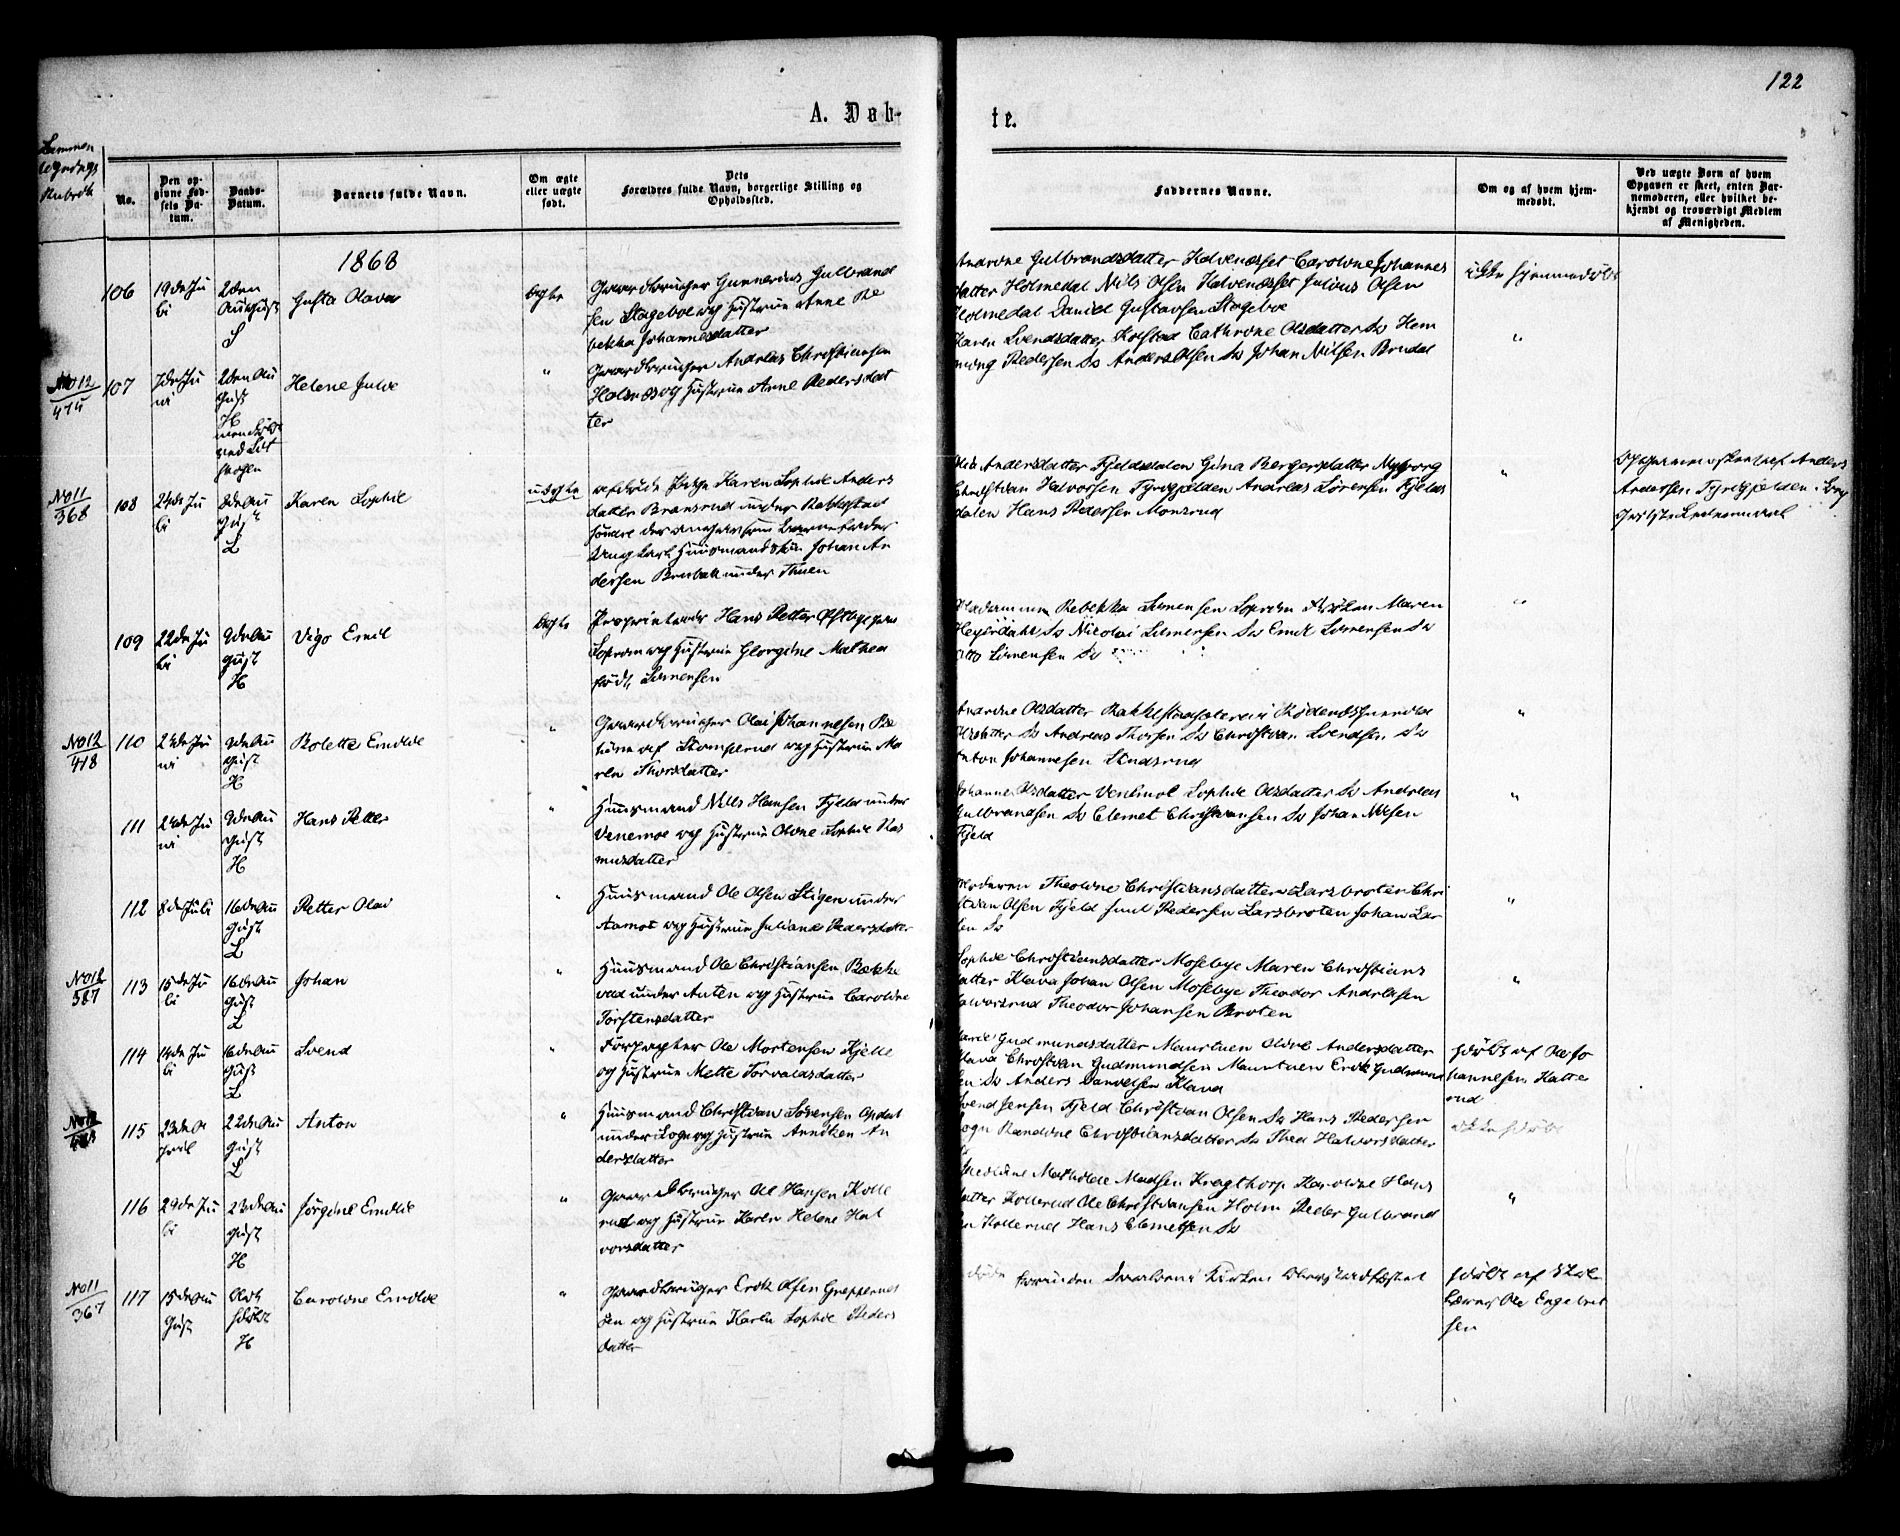 122
A. Døb-
te.
Sammen
lignings
Rubrik
No.
Den op-
givne Fød-
sels Da-
tum.
Daabs-
Datum.
Barnets fulde Navn.
Om ægte
eller uægte
født.
Dets
Forældres fulde Navn, borgerlige Stilling og
Opholdssted.
Faddernes Navne.
Om og af hvem hjem-
medøbt.
Ved uægte Børn af hvem
Opgaven er skeet, enten Bar-
nemoderen, eller hvilket be-
kjendt og troværdigt Medlem
af Menigheden.
1868
106
19de Ju
li
2den
August
S
Gusta Olava
ægte
Gaardbruger Gunnerius Gulbrand
sen Stageboe og Hustrue Anne Re
bekka Johannesdatter
Andrine Gulbrandsdatter Halvenæsset Caroline Johannes
datter Holmedal Nils Olsen Halvenæsset Julius Olsen
Holmedal David Gustavsen Stageboe
ikke hjemmedøbt
No 12
107
7de Ju
ni
2den Au
gust
H
Helene Julie
"
Gaardbruger Andreas Christiansen
Holsnæs og Hustrue Anne Peders dat
ter
Karen Svendsdatter Kolstad Cathrine Olsdatter Ss Hem
ming Pedersen Ss Anders Olsen Ss Johan Nilsen Brudal
"
No 11
368
108
24de Ju
li
2den Au
gust
L
Karen Sophie
uægte
Pige Karen Sophie Anders
datter under Rakkestad
søndre der angav som Barnefader
Ungkarl Huusmandssøn Johan An
dersen under Thuen
Andersdatter Fjeldsdalen Gina Bergersdatter Nyborg
Christian Halvorsen Tyrigjelden Andreas Sørensen Fjelds
dalen Hans Pedersen Monsrud
"
Anders
Andersen Tyrigjelden
109
22de Ju
li
9de Au
gust
H
Vigo Emil
ægte
Proprietair Hans Petter
og Hustrue Georgine Mathea
født Simensen
Madammen Rebekka Simensen Maren
Heyerdahl Ss Nicolai Simensen Ss Emil Simensen Ss
Otto Simensen Ss
"
No 12
418
110
24de Ju
ni
9de Au
gust
H
Bolette Emilie
"
Gaardbruger Olai Johannesen
og Hustrue Ma
ren Thorsdatter
Andrine Olsdatter
Olsdatter Ss Andreas Thorsen Ss Christian Svendsen Ss
Anton Johannesen
"
111
24de Ju
ni
9de Au
gust
H
Hans Petter
"
Huusmand Nils Hansen Fjeld under
Venemoe og Hustrue Oline Sophie Ras
musdatter
Johanne Olsdatter Venemoe Sophie Olsdatter Ss Andreas
Gulbrandsen Ss Clemet Christiansen Ss Johan Nilsen
Fjeld
"
112
8de Juli
16de Au
gust
L
Petter Olai
"
Huusmand Ole Olsen Stigen under
Aamot og Hustrue Juliane Pedersdatter
Moderen Theoline Christiansdatter Larsbroten Chri
stian Olsen Fjeld Juul Pedersen Larsbroten Johan Lar
sen Ss
"
No 12
387
113
15de Ju
li
16de Au
gust
L
Johan
"
Huusmand Ole Christiansen Bække
under Anten og Hustrue Caroline
Torstensdatter
Sophie Christiansdatter Mosebye Maren Christians
datter Klava Johan Olsen Mosebye Theodor Andreasen
Theodor Johansen Broten
"
114
14de Ju
li
16de Au
gust
L
Svend
"
Forpagter Ole Mortensen Kjelle
og Hustrue Mette Torvaldsdatter
Gudmundsdatter Maustuen Oline Andersdatter
Klava Christian Gudmundsen Maustuen Erik Gudmund
sen Ss Anders Danielsen Klava
hjdøbt af Ole Jo
hannesen Katte
rud
No 12
115
23de A
pril
22de Au
gust
L
Anton
"
Huusmand Christian Sørensen
under og Hustrue Anniken An
dersdatter
Svend Jensen Fjeld Christian Olsen Ss Hans Pedersen
Randine Christiansdatter Ss Thea Halvorsdatter
ikke hjdøbt
116
29de Ju
li
23de Au
gust
H
Jørgine Emilie
"
Gaardbruger Ole Hansen Kolle
rud og Hustrue Karen Helene Hal
vorsdatter
Mathilde Madsen Kragthorp Karoline Hans
datter Kollerud Ole Christiansen Holm Peder Gulbrand
sen Kollerud Hans Clemetsen Ss
"
No 11
367
117
15de Au
gust
hjdøbt
H
Caroline Emilie
"
Gaardbruger Erik Olsen
og Hustrue Karen Sophie Peders
datter
døde forinden Daaben i Kirken
hjdøbt af Skole
lærer Ole Engebret
sen